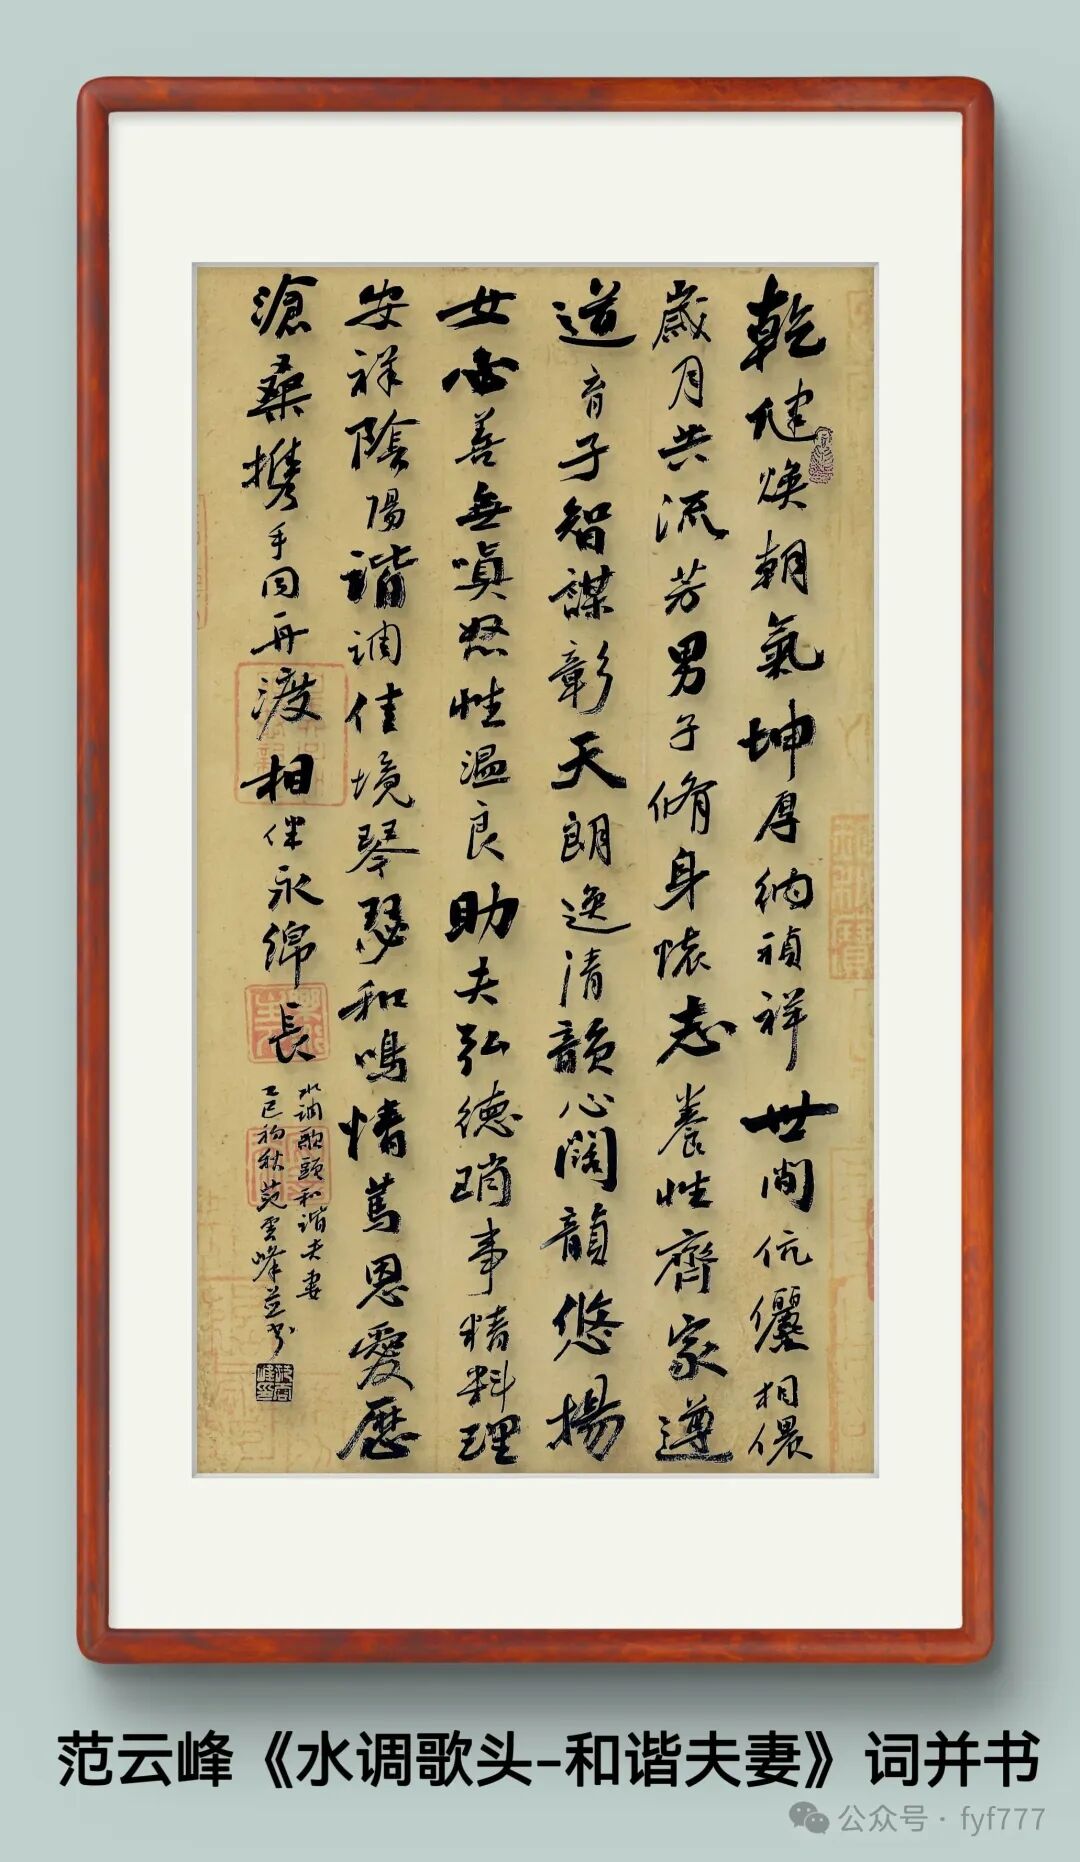 乾健焕朝氣坤厚納禎祥世間伉儷相偎
歲月共流芳男子脩身懷志養性齊家遵
道育子智謀彰天朗逸清韻心闊韻悠揚
女必善無嗔怒性温良助夫弘德瑣事精料理
安祥陰陽谐调佳境琴瑟和鳴情篤恩愛歷
滄桑携手同舟渡相伴永綿長
水调歌頭和谐夫妻
乙巳初秋范雲峰並书
范云峰《水调歌头-和谐夫妻》词并书
公众号·fyf777